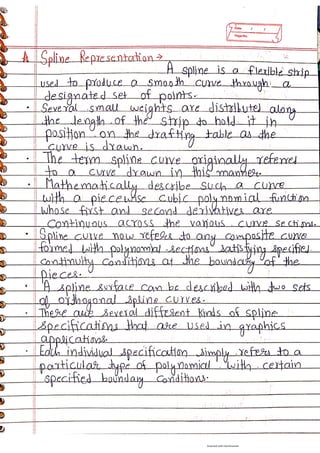 A Spline Representation →
A spline is a flexible strip
used to produce a smooth curve through a
designated set of points.
• Several small weights are distributed along
the length of the strip to hold it in
position on the drafting table as the
curve is drawn.
• The term spline curve originally referred
to a curve drawn in this manner.
• Mathematically describe such a curve
with a piecewise cubic polynomial function
whose first and second derivatives are
continuous across the various curve sections.
• Spline curve now refers to any composite curve
formed with polynomial sections satisfying specified
continuity conditions at the boundary of the
pieces.
• A spline surface can be described with two sets
of orthogonal spline curves.
• There are several different kinds of spline
specifications that are used in graphics
applications.
• Each individual specification simply refers to a
particular type of polynomial with certain
specified boundary conditions.